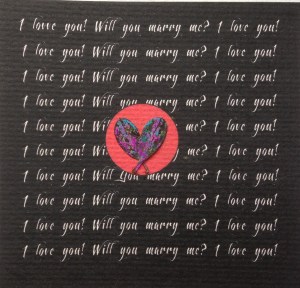 I love you! Will you marry me? I love you!
I love you! Will you marry me? I love you!
I love you! Will you marry me? I love you!
I love you! Will you marry me? I love you!
I love you! I love you!
I love you! me? I love you!
I love you! Will you marry me? I love you!
I love you! Will you marry me? I love you!
I love you! Will you marry me? I love you!
I love you! Will you marry me? I love you!